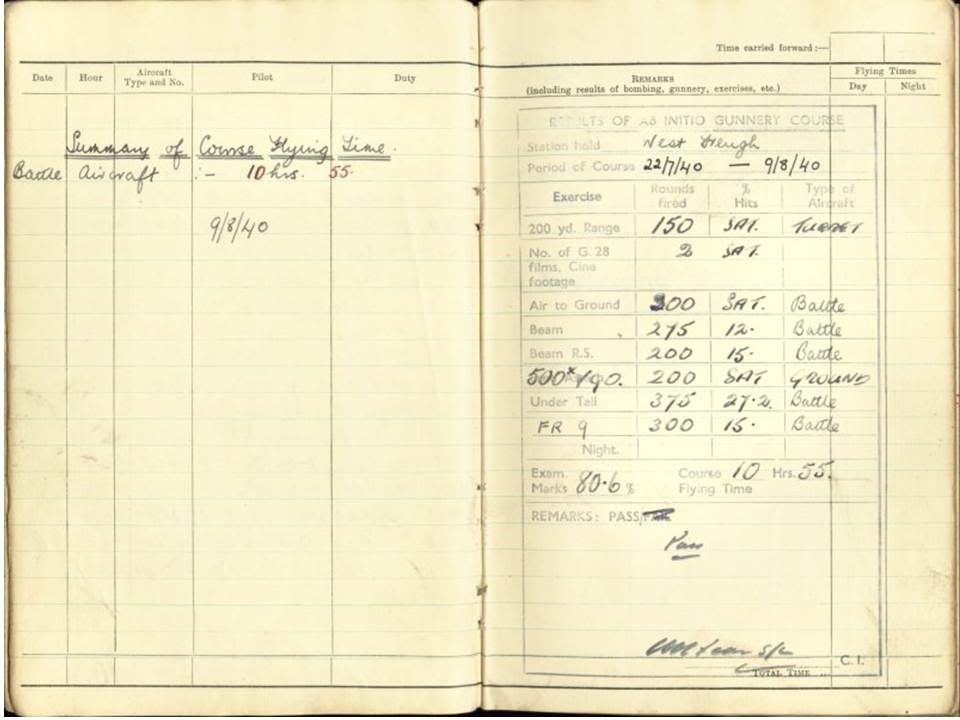 Date Hour Aircraft Type and No. Pilot Duty
Summary of Course Flying Time.
Battle Aircraft :- 10 hrs. 55.
9/8/40
Time carried forward :—
REMARKS
(including results of bombing, gunnery, exercises, etc.)
Flying Times
Day Night
RESULTS OF AB INITIO GUNNERY COURSE
Station held West Freugh
Period of Course 22/7/40 — 9/8/40
Exercise Rounds fired % Hits Type of Aircraft
200 yd. Range 150 SAT. TURRET
No. of G. 28 films, Cine footage 2 SAT.
Air to Ground 300 SAT. Battle
Beam 275 12. Battle
Beam R.S. 200 15. Battle
500 200 SAT GROUND
Under Tail 375 27.2. Battle
FR 9 300 15. Battle
Night.
Exam. Marks 80.6 % Course 10 Hrs. 55.
Flying Time
REMARKS: PASS/FAIL
Pass
S/L
C. I.
TOTAL TIME ...